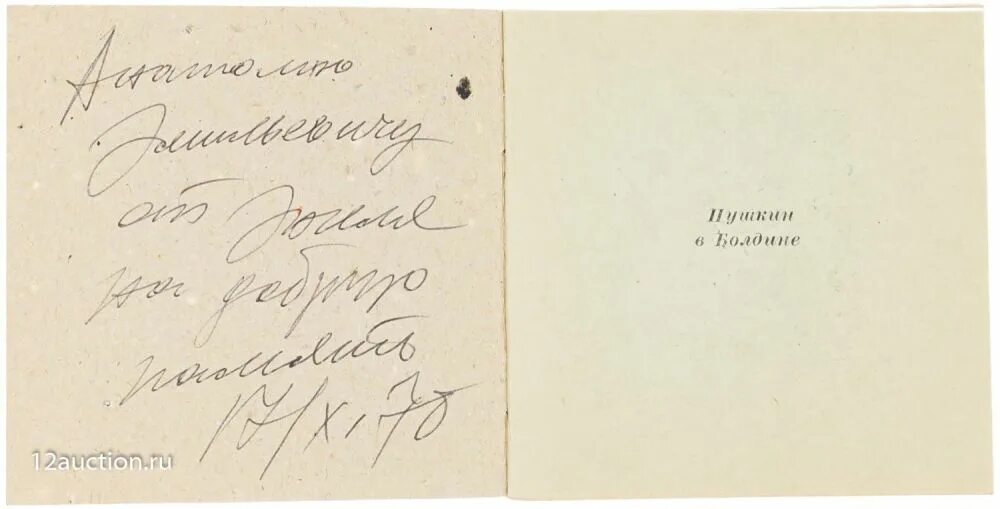 Анатолию
Эмильевичу
от Эмиля
на добрую
память
17/X,70
12auction.ru
Пушкин
в Болдине